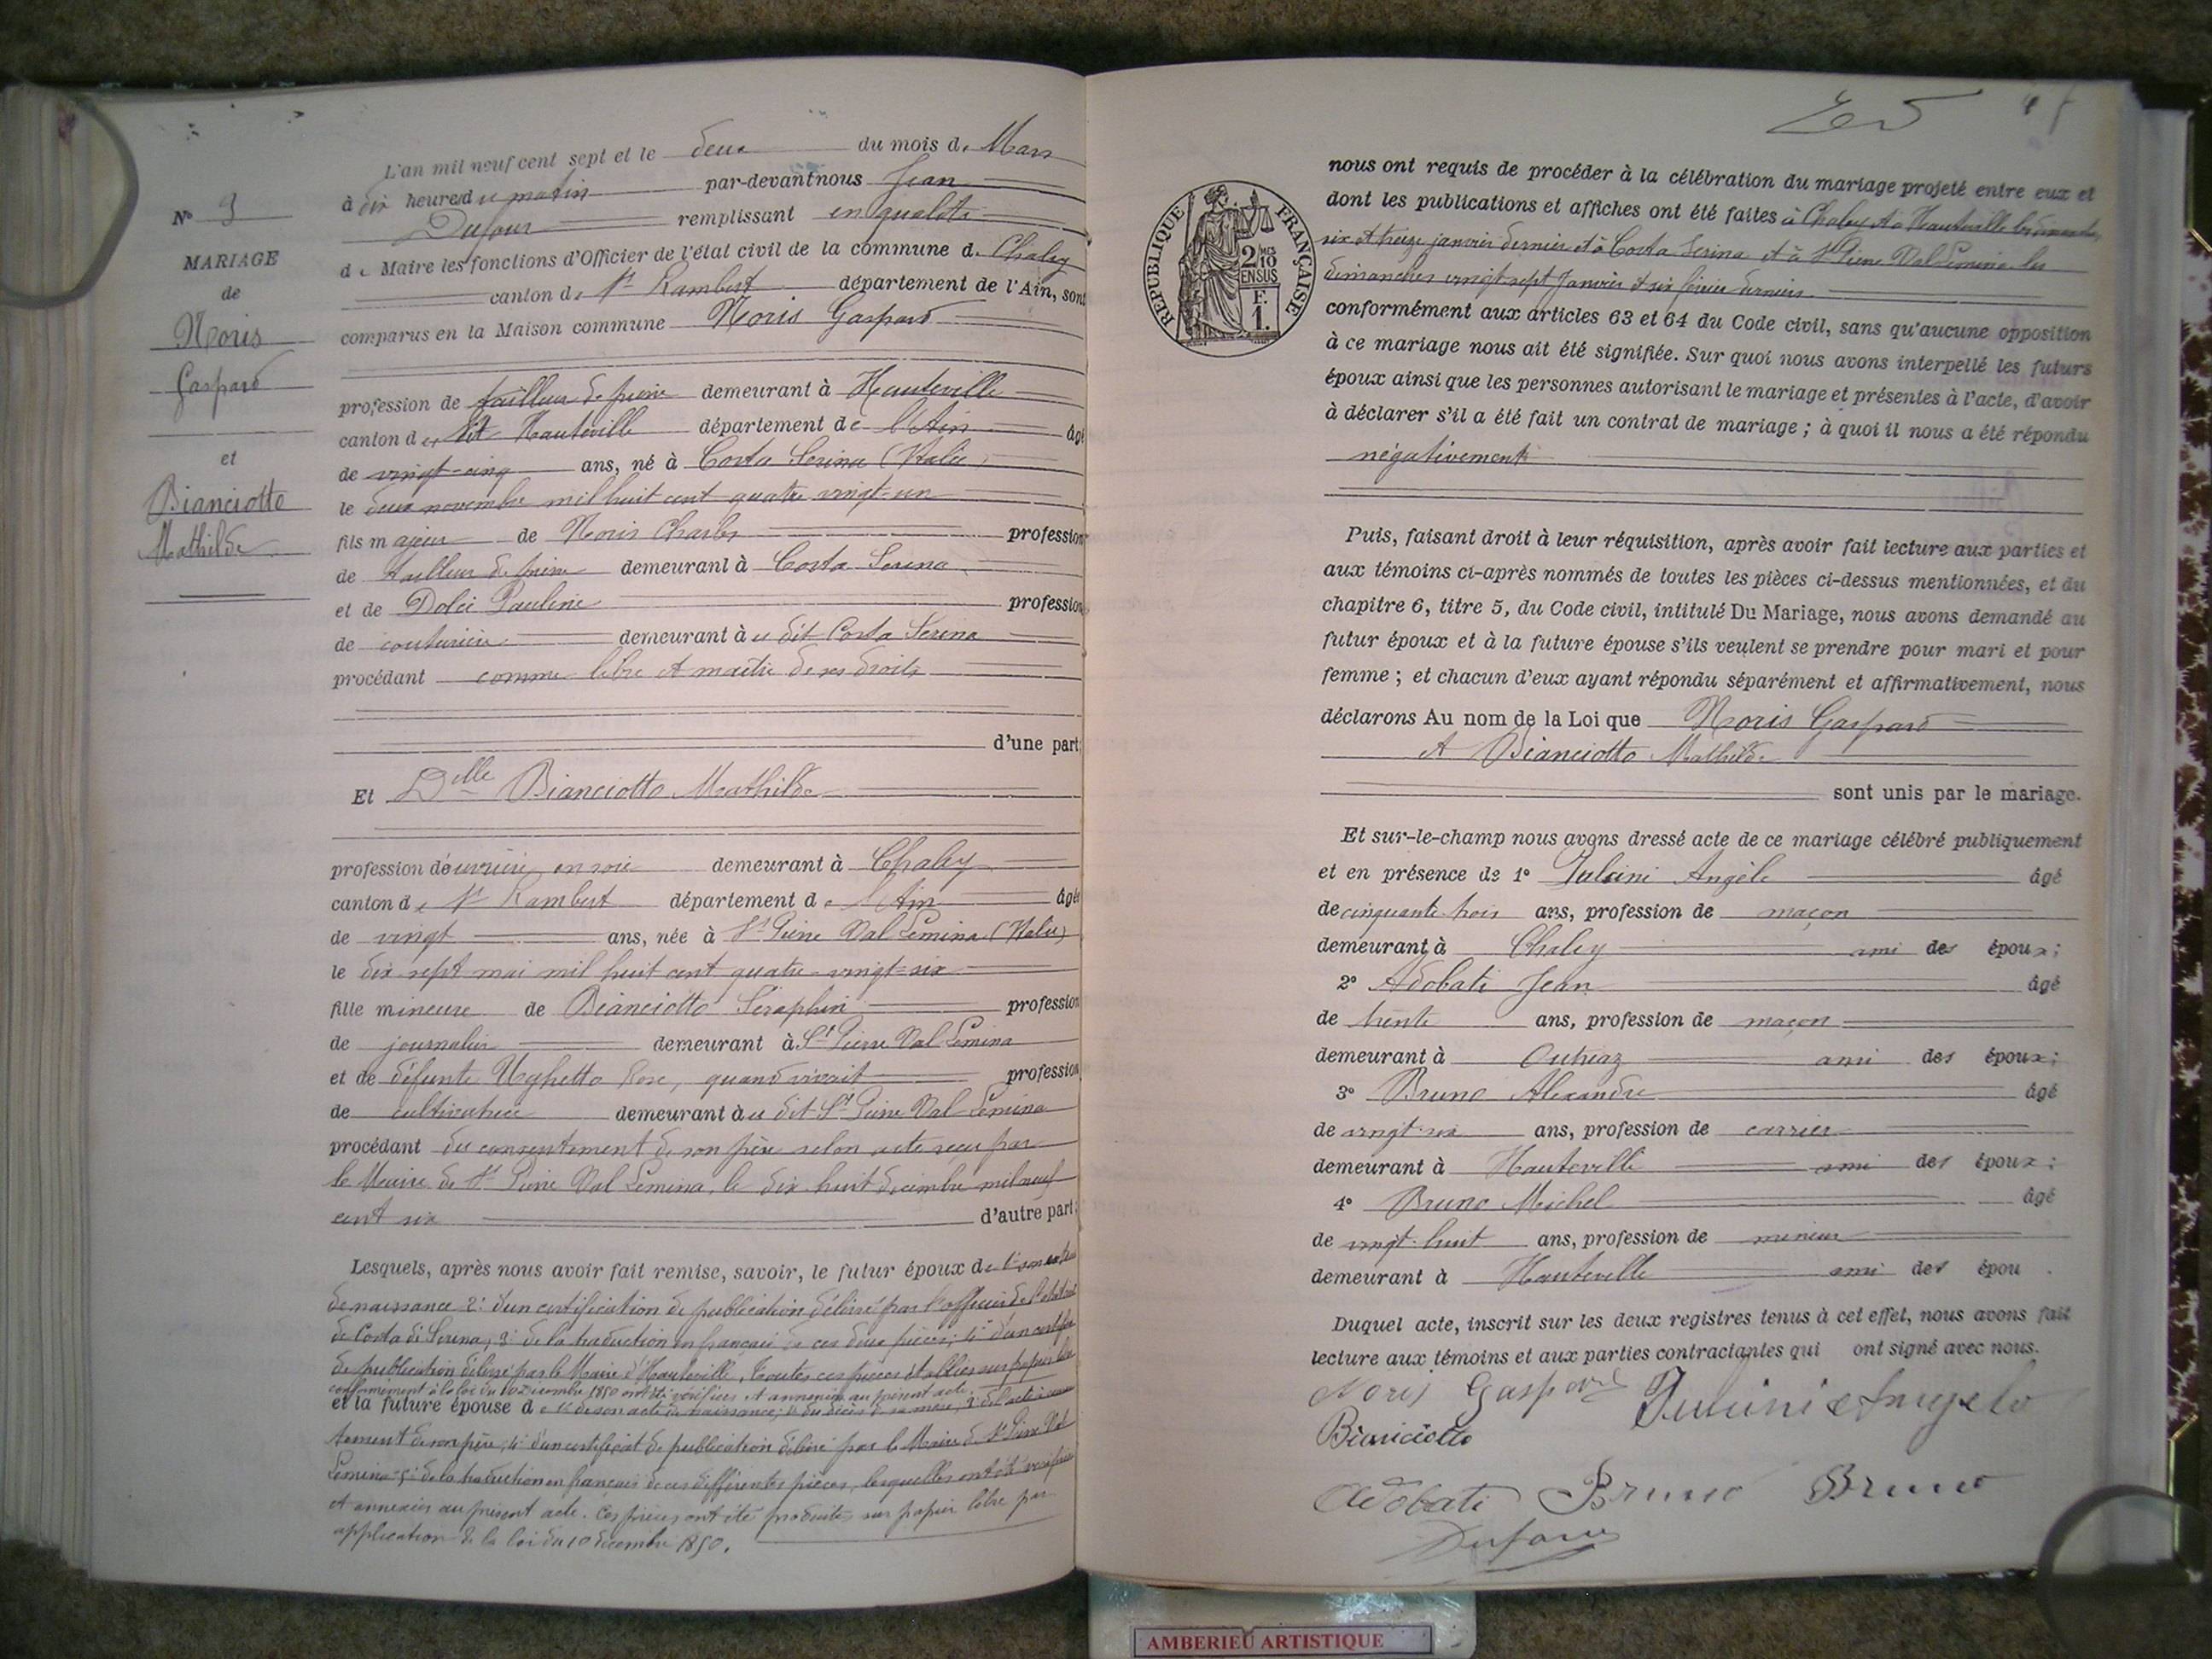 N° 3
MARIAGE
de
Noris
Gaspard
et
Bianciotto
Mathilde
L'an mil neuf cent sept et le deux du mois de Mars
à dix heures du matin par-devant nous Jean
Dufour remplissant en qualité
de Maire les fonctions d'Officier de l'état civil de la commune de Chaley
canton de St Rambert département de l'Ain, sont
comparus en la Maison commune Noris Gaspard
profession de tailleur de pierre demeurant à Hauteville
canton du dit Hauteville département de l'Ain âgé
de vingt-cinq ans, né à Costa Serina (Italie)
le deux novembre mil huit cent quatre vingt-un
fils majeur de Noris Charles profession
de tailleur de pierre demeurant à Costa Serina
et de Dolci Pauline profession
de couturière demeurant au dit Costa Serina
procédant comme libre et maître de ses droits
d'une part;
Et Delle Bianciotto Mathilde
profession d'ouvrière en soie demeurant à Chaley
canton de St Rambert département de l'Ain âgée
de vingt ans, née à St Pierre Val Lemina (Italie)
le dix sept mai mil huit cent quatre-vingt-six
fille mineure de Bianciotto Séraphin profession
de journalier demeurant à St Pierre Val Lemina
et de défunte Ughetto Rose, quand vivait profession
de cultivatrice demeurant au dit St Pierre Val Lemina
procédant du consentement de son père selon acte reçu par
le Maire de St Pierre Val Lemina, le dix huit décembre mil neuf
cent six d'autre part;
Lesquels, après nous avoir fait remise, savoir, le futur époux de 1°
de naissance 2° d'un certification de publication délivré par l'officier de l'état civil
de Costa di Serina; 3° de la traduction en français de ces deux pièces; 4° d'un certificat
de publication délivré par le Maire d'Hauteville, toutes ces pièces établies sur papier libre
conformément à la loi du 10 Décembre 1850 ont été vérifiées et annexées au présent acte.
et la future épouse de 1° de son acte de naissance; 2° du décès de sa mère, 3° de l'acte de consen-
tement de son père; 4° d'un certificat de publication délivré par le Maire de St Pierre Val
Lemina 5° de la traduction en français de ces différentes pièces, lesquelles ont été vérifiées
et annexées au présent acte. Ces pièces ont été produites sur papier libre par
application de la loi du 10 décembre 1850.
RÉPUBLIQUE FRANÇAISE
2/10
EN SUS
F.
1.
nous ont requis de procéder à la célébration du mariage projeté entre eux et
dont les publications et affiches ont été faites à Chaley et à Hauteville les dimanches
six et treize janvier dernier et à Costa Serina et à St Pierre Val Lemina les
dimanches vingt sept Janvier et six février derniers
conformément aux articles 63 et 64 du Code civil, sans qu'aucune opposition
à ce mariage nous ait été signifiée. Sur quoi nous avons interpellé les futurs
époux ainsi que les personnes autorisant le mariage et présentes à l'acte, d'avoir
à déclarer s'il a été fait un contrat de mariage; à quoi il nous a été répondu
négativement
Puis, faisant droit à leur réquisition, après avoir fait lecture aux parties et
aux témoins ci-après nommés de toutes les pièces ci-dessus mentionnées, et du
chapitre 6, titre 5, du Code civil, intitulé Du Mariage, nous avons demandé au
futur époux et à la future épouse s'ils veulent se prendre pour mari et pour
femme; et chacun d'eux ayant répondu séparément et affirmativement, nous
déclarons Au nom de la Loi que Noris Gaspard
et Bianciotto Mathilde
sont unis par le mariage.
Et sur-le-champ nous avons dressé acte de ce mariage célébré publiquement
et en présence de 1° Angèle âgé
de cinquante trois ans, profession de maçon
demeurant à Chaley ami des époux;
2° Adobati Jean âgé
de trente ans, profession de maçon
demeurant à Outriaz ami des époux;
3° Bruno Alexandre âgé
de vingt six ans, profession de carrier
demeurant à Hauteville ami des époux;
4° Bruno Michel âgé
de vingt-huit ans, profession de mineur
demeurant à Hauteville ami des épou .
Duquel acte, inscrit sur les deux registres tenus à cet effet, nous avons fait
lecture aux témoins et aux parties contractantes qui ont signé avec nous.
Noris Gaspard Angelo
Bianciotto
Adobati Bruno Bruno
Dufour
AMBERIEU ARTISTIQUE